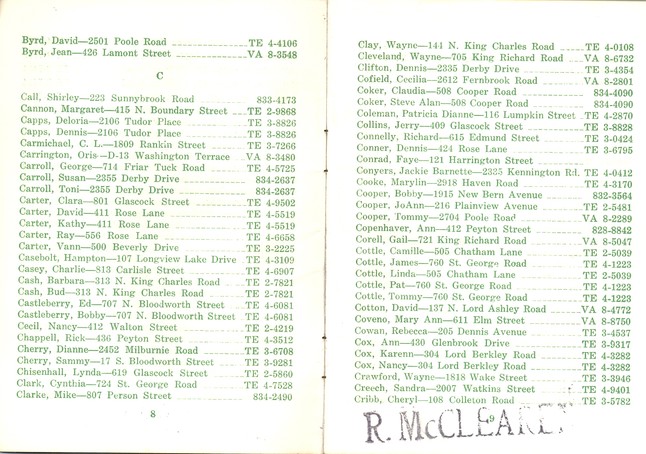 Byrd, David—2501 Poole Road TE 4-4106
Byrd, Jean—426 Lamont Street VA 8-3548
C
Call, Shirley—223 Sunnybrook Road 833-4173
Cannon, Margaret—415 N. Boundary Street TE 2-9868
Capps, Deloria—2106 Tudor Place TE 3-8826
Capps, Dennis—2106 Tudor Place TE 3-8826
Carmichael, C. L.—1809 Rankin Street TE 3-7266
Carrington, Oris—D-13 Washington Terrace VA 8-3480
Carroll, George—714 Friar Tuck Road TE 4-5725
Carroll, Susan—2355 Derby Drive 834-2637
Carroll, Toni—2355 Derby Drive 834-2637
Carter, Clara—801 Glascock Street TE 4-9502
Carter, David—411 Rose Lane TE 4-5519
Carter, Kathy—411 Rose Lane TE 4-5519
Carter, Ray—556 Rose Lane TE 4-6658
Carter, Vann—500 Beverly Drive TE 3-2225
Casebolt, Hampton—107 Longview Lake Drive TE 4-3109
Casey, Charlie—813 Carlisle Street TE 4-6907
Cash, Barbara—313 N. King Charles Road TE 2-7821
Cash, Bud—313 N. King Charles Road TE 2-7821
Castleberry, Ed—707 N. Bloodworth Street TE 4-6081
Castleberry, Bobby—707 N. Bloodworth Street TE 4-6081
Cecil, Nancy—412 Walton Street TE 2-4219
Chappell, Rick—436 Peyton Street TE 4-3512
Cherry, Dianne—2452 Milburnie Road TE 3-6708
Cherry, Sammy—17 S. Bloodworth Street TE 3-9281
Chisenhall, Lynda—619 Glascock Street TE 2-5860
Clark, Cynthia—724 St. George Road TE 4-7528
Clarke, Mike—807 Person Street 834-2490
8
Clay, Wayne—141 N. King Charles Road TE 4-0108
Cleveland, Wayne—705 King Richard Road VA 8-6732
Clifton, Dennis—2335 Derby Drive TE 3-4354
Cofield, Cecilia—2612 Fernbrook Road VA 8-2801
Coker, Claudia—508 Cooper Road 834-4090
Coker, Steve Alan—508 Cooper Road 834-4090
Coleman, Patricia Dianne—116 Lumpkin Street TE 4-2870
Collins, Jerry—409 Glascock Street TE 3-8828
Connelly, Richard—615 Edmund Street TE 3-0424
Conner, Dennis—424 Rose Lane TE 3-6795
Conrad, Faye—121 Harrington Street
Conyers, Jackie Barnette—2325 Kennington Rd. TE 4-0412
Cooke, Marylin—2918 Haven Road TE 4-3170
Cooper, Bobby—1915 New Bern Avenue 832-3564
Cooper, JoAnn—216 Plainview Avenue TE 2-5481
Cooper, Tommy—2704 Poole Road VA 8-2289
Copenhaver, Ann—412 Peyton Street 828-8842
Corell, Gail—721 King Richard Road VA 8-5047
Cottle, Camille—505 Chatham Lane TE 2-5039
Cottle, James—760 St. George Road TE 4-1223
Cottle, Linda—505 Chatham Lane TE 2-5039
Cottle, Pat—760 St. George Road TE 4-1223
Cottle, Tommy—760 St. George Road TE 4-1223
Cotton, David—137 N. Lord Ashley Road VA 8-4772
Coveno, Mary Ann—611 Elm Street VA 8-8750
Cowan, Rebecca—205 Dennis Avenue TE 3-4537
Cox, Ann—430 Glenbrook Drive TE 3-9317
Cox, Karenn—304 Lord Berkley Road TE 4-3282
Cox, Nancy—304 Lord Berkley Road TE 4-3282
Crawford, Wayne—1818 Wake Street TE 3-3946
Creech, Sandra—2007 Watkins Street TE 4-9401
Cribb, Cheryl—108 Colleton Road TE 3-5782
9
R.